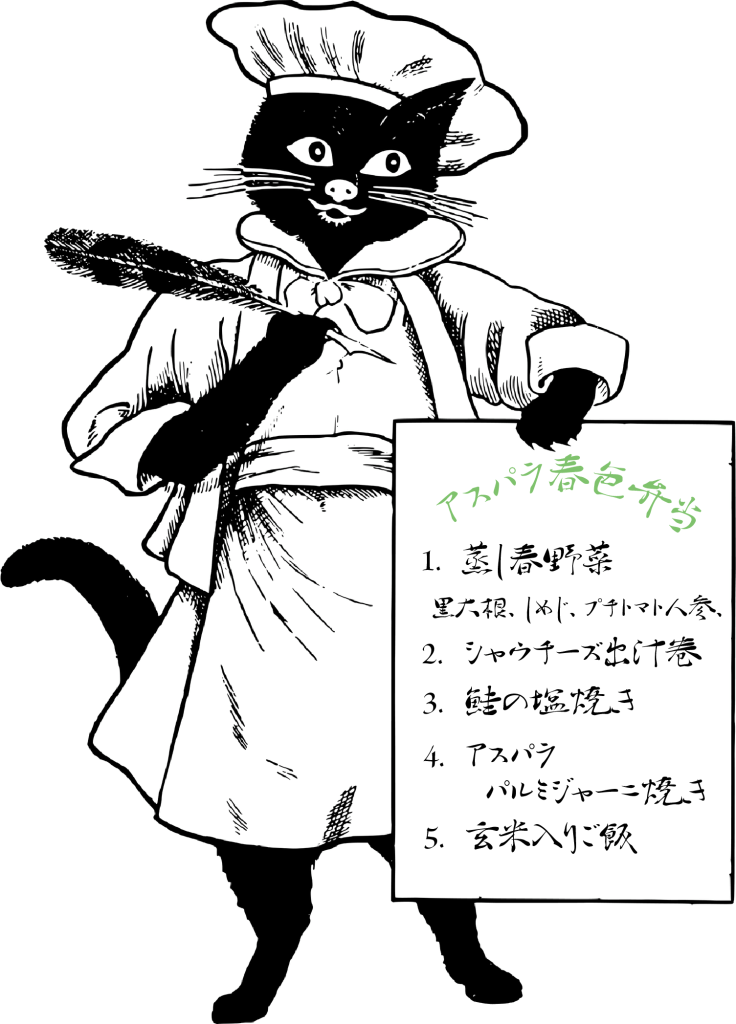 アスパラ春色弁当
1. 蒸し春野菜
黒大根、しめじ、プチトマト人参、
2. シャウチーズ出汁巻
3. 鮭の塩焼き
4. アスパラ
パルミジャーニ焼き
5. 玄米入りご飯